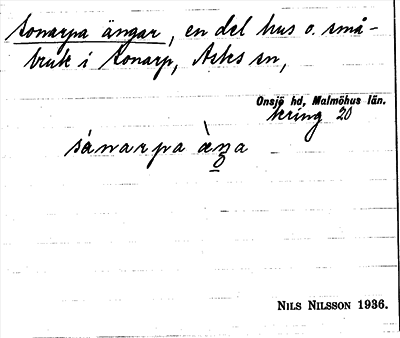 Sonarpa ängar, en del hus o. små-
bruk i Sonarp, Asks sn,
Onsjö hd, Malmöhus län.
kring 20
sånarpa àŋa
NILS NILSSON 1936.